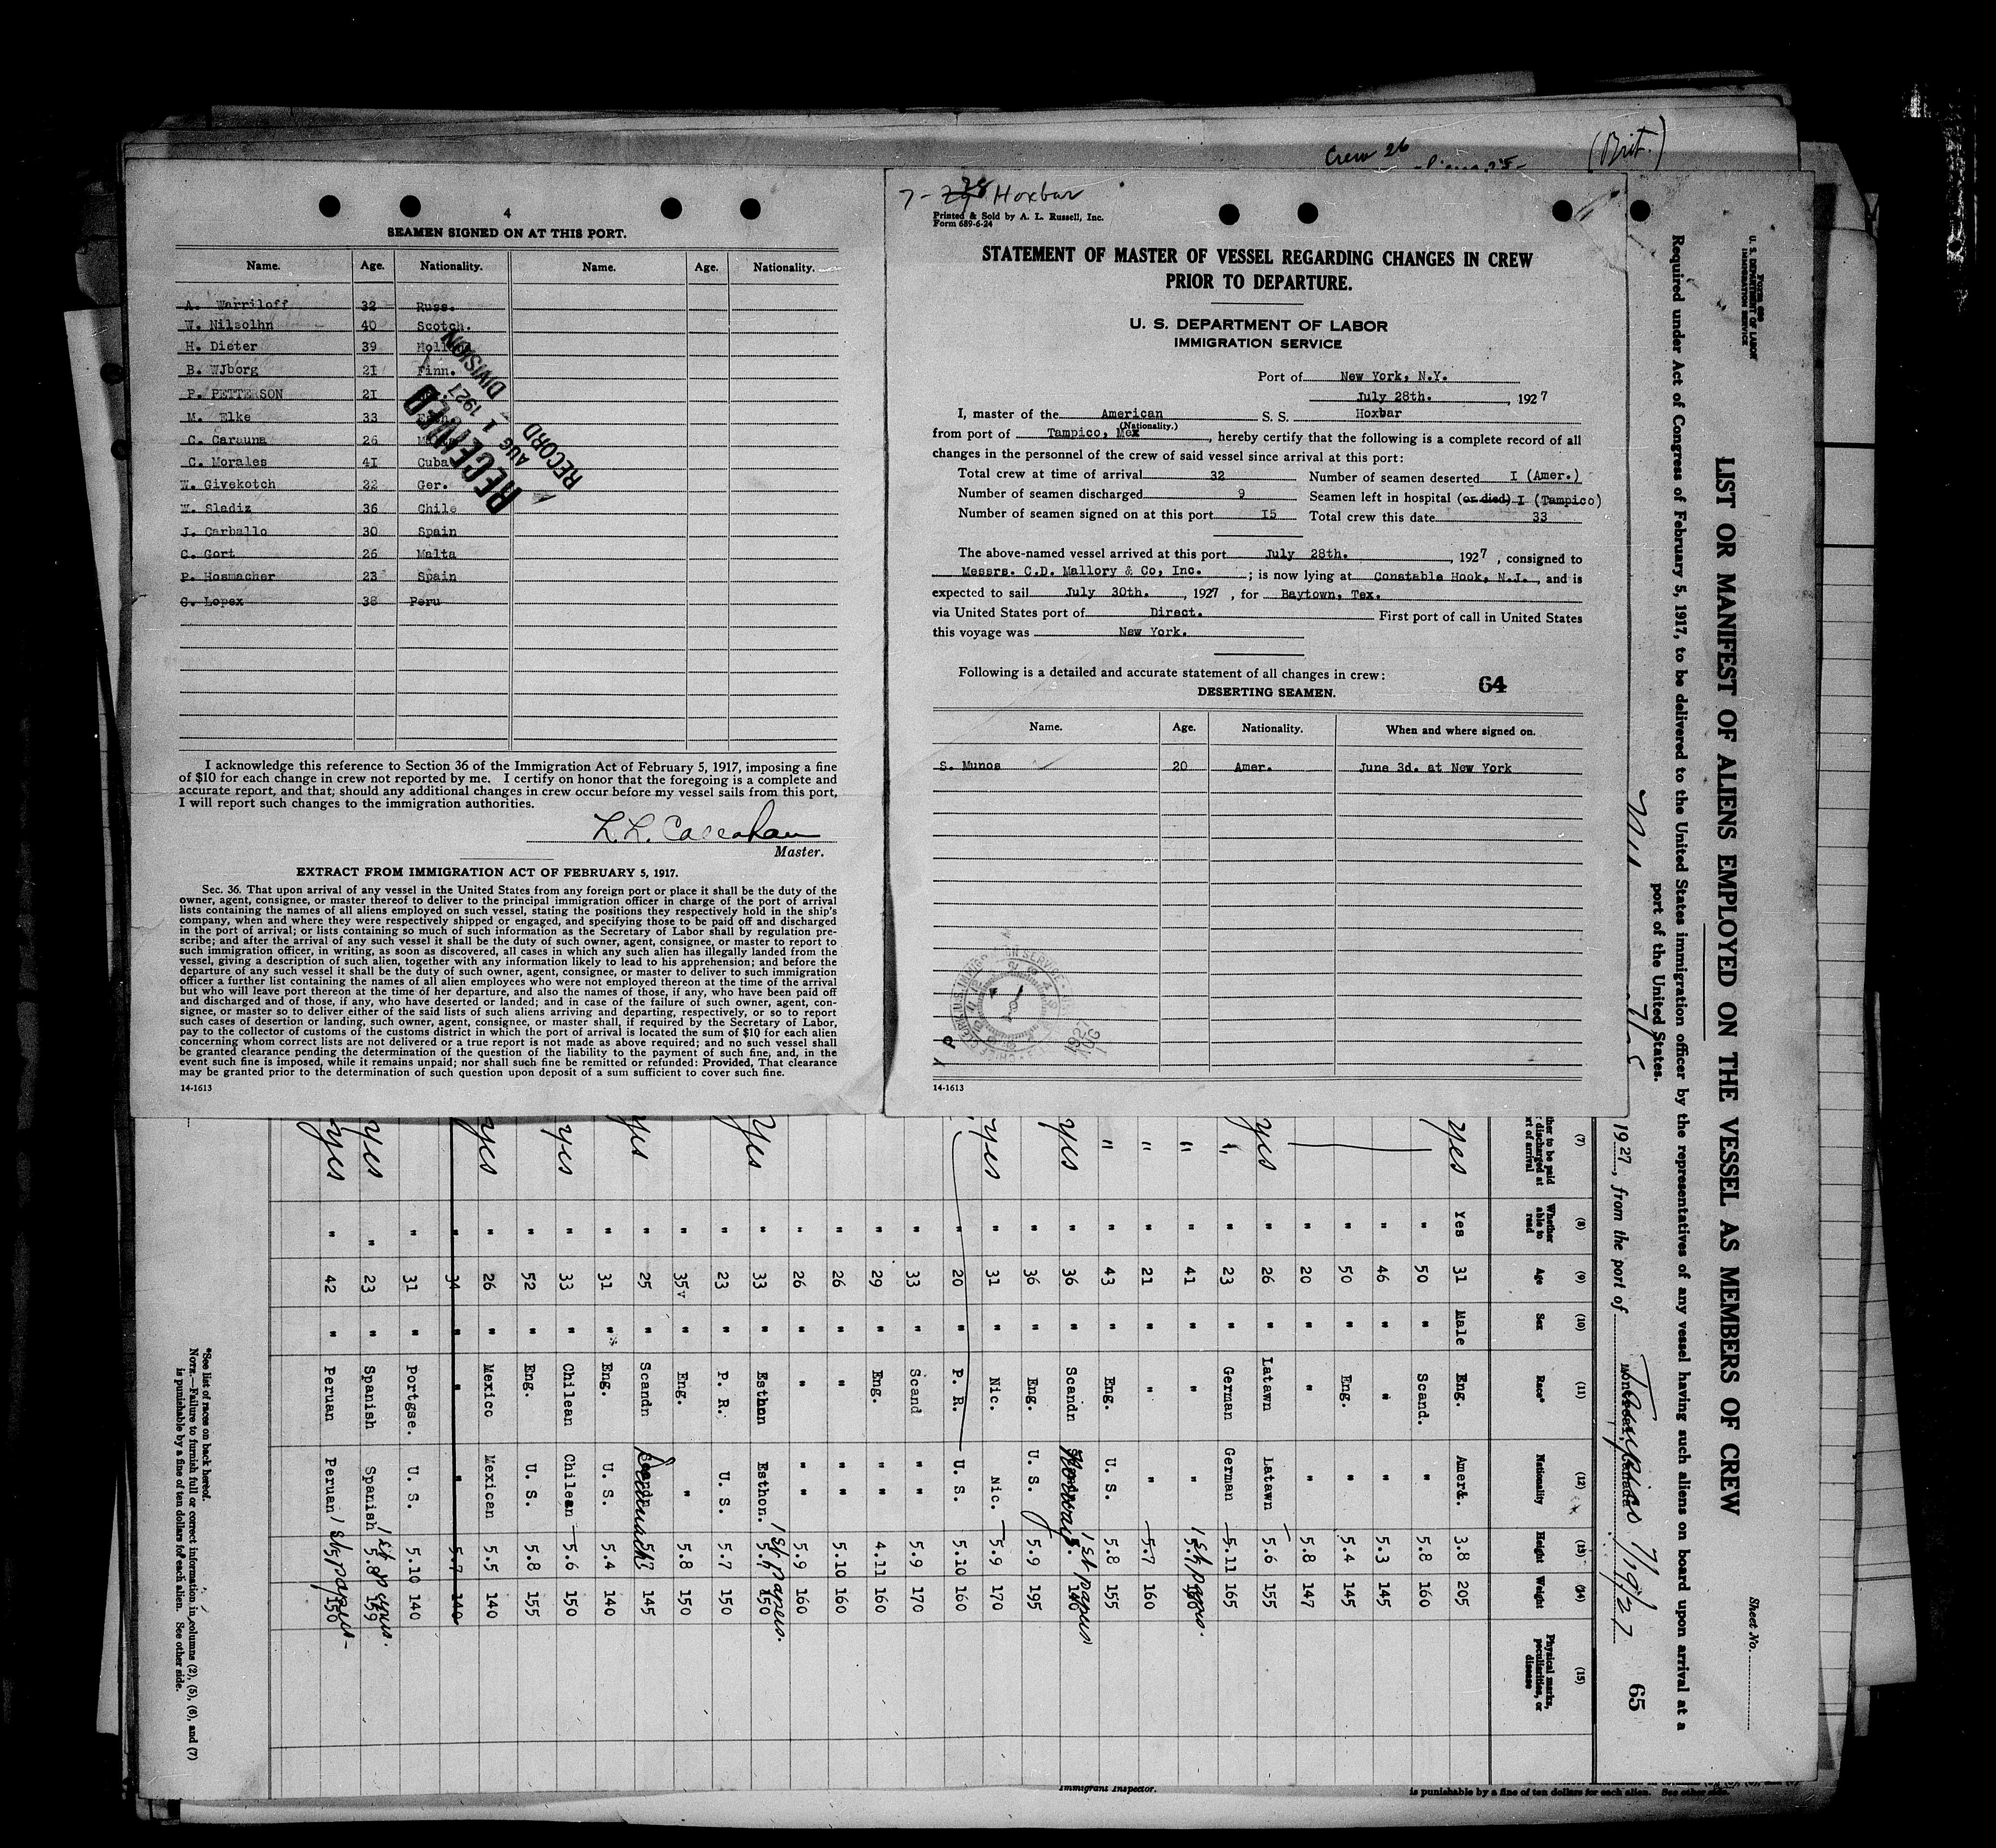 Crew 26
(Brit.)
4
SEAMEN SIGNED ON AT THIS PORT.
Name. Age. Nationality. Name. Age. Nationality.
A. Warriloff 32 Russ.
W. Nilsolhn 40 Scotch.
H. Dieter 39
B. WJborg 21 Finn.
P. PETTERSON 21
M. Elke 33
C. Carauna 26
C. Morales 41 Cuba
W. Givekotch 22 Ger.
W. Sladiz 36 Chile
J. Carballo 30 Spain
C. Gort 26 Malta
P. Hosmacher 23 Spain
C. Lopex 38 Peru
RECEIVED
AUG 1 1927
RECORD DIVISION
I acknowledge this reference to Section 36 of the Immigration Act of February 5, 1917, imposing a fine
of $10 for each change in crew not reported by me. I certify on honor that the foregoing is a complete and
accurate report, and that; should any additional changes in crew occur before my vessel sails from this port,
I will report such changes to the immigration authorities.
L.L. Callahan
Master.
EXTRACT FROM IMMIGRATION ACT OF FEBRUARY 5, 1917.
Sec. 36. That upon arrival of any vessel in the United States from any foreign port or place it shall be the duty of the
owner, agent, consignee, or master thereof to deliver to the principal immigration officer in charge of the port of arrival
lists containing the names of all aliens employed on such vessel, stating the positions they respectively hold in the ship's
company, when and where they were respectively shipped or engaged, and specifying those to be paid off and discharged
in the port of arrival; or lists containing so much of such information as the Secretary of Labor shall by regulation pre-
scribe; and after the arrival of any such vessel it shall be the duty of such owner, agent, consignee, or master to report to
such immigration officer, in writing, as soon as discovered, all cases in which any such alien has illegally landed from the
vessel, giving a description of such alien, together with any information likely to lead to his apprehension; and before the
departure of any such vessel it shall be the duty of such owner, agent, consignee, or master to deliver to such immigration
officer a further list containing the names of all alien employees who were not employed thereon at the time of the arrival
but who will leave port thereon at the time of her departure, and also the names of those, if any, who have been paid off
and discharged and of those, if any, who have deserted or landed; and in case of the failure of such owner, agent, con-
signee, or master so to deliver either of the said lists of such aliens arriving and departing, respectively, or so to report
such cases of desertion or landing, such owner, agent, consignee, or master shall, if required by the Secretary of Labor,
pay to the collector of customs of the customs district in which the port of arrival is located the sum of $10 for each alien
concerning whom correct lists are not delivered or a true report is not made as above required; and no such vessel shall
be granted clearance pending the determination of the question of the liability to the payment of such fine; and, in the
event such fine is imposed, while it remains unpaid; nor shall such fine be remitted or refunded: Provided, That clearance
may be granted prior to the determination of such question upon deposit of a sum sufficient to cover such fine.
14-1613
7-28 Hoxbar
Printed & Sold by A. L. Russell, Inc.
Form 689-6-24
STATEMENT OF MASTER OF VESSEL REGARDING CHANGES IN CREW
PRIOR TO DEPARTURE.
U. S. DEPARTMENT OF LABOR
IMMIGRATION SERVICE
Port of New York, N.Y.
July 28th. , 1927
I, master of the American S. S. Hoxbar
(Nationality.)
from port of Tampico, Mex , hereby certify that the following is a complete record of all
changes in the personnel of the crew of said vessel since arrival at this port:
Total crew at time of arrival 32 Number of seamen deserted I (Amer.)
Number of seamen discharged 9 Seamen left in hospital (or died) I (Tampico)
Number of seamen signed on at this port I5 Total crew this date 33
The above-named vessel arrived at this port July 28th. , 1927 , consigned to
Messrs. C.D. Mallory & Co, Inc. ; is now lying at Constable Hook, N.J. , and is
expected to sail July 30th. , 1927 , for Baytown, Tex.
via United States port of Direct. First port of call in United States
this voyage was New York.
Following is a detailed and accurate statement of all changes in crew: 64
DESERTING SEAMEN.
Name. Age. Nationality. When and where signed on.
S. Munos 20 Amer. June 3d. at New York
1927 AUG 1
14-1613
FORM 680
U. S. DEPARTMENT OF LABOR
IMMIGRATION SERVICE
Sheet No.
LIST OR MANIFEST OF ALIENS EMPLOYED ON THE VESSEL AS MEMBERS OF CREW
Required under Act of Congress of February 5, 1917, to be delivered to the United States immigration officer by the representatives of any vessel having such aliens on board upon arrival at a
port of the United States.
1927, from the port of Tampico 7/19/27 65
(7) (8) (9) (10) (11) (12) (13) (14) (15)
ther to be paid discharged at rt of arrival Whether able to read Age Sex Race* Nationality Height Weight Physical marks, peculiarities, or disease
yes Yes 31 Male Eng. Amer&. 3.8 205
" 50 " Scand. " 5.8 160
" 46 " " " 5.3 145
" 50 " Eng. " 5.4 145
" 20 " " " 5.8 147
yes " 26 " Latawn Latawn 5.6 155
" " 23 " German German 5.11 165
" " 41 " " " 1st papers.
" " 21 " " " 5.7 160
" " 43 " Eng. U. S. 5.8 155
yes " 36 " Scandn Norway. 1st papers 140
" 36 " Eng. U. S. 5.9 195
yes " 31 " Nic. Nic. 5.9 170
" 20 " P. R. U. S. 5.10 160
" 33 " Scand " 5.9 170
" 29 " Eng. " 4.11 160
" 26 " " " 5.10 160
" 26 " " " 5.9 160
yes " 33 " Esthon Esthon. 5.7 150 1st papers.
" 23 " P. R. U. S. 5.7 150
" 35 " Eng. " 5.8 150
yes " 25 " Scandn Denmark 5.7 145
" 31 " Eng. U. S. 5.4 140
yes " 33 " Chilean Chilean 5.6 150
" 52 " Eng. U. S. 5.8 155
yes " 26 " Mexico Mexican 5.5 140
" 34 " " " 5.7 140
" 31 " Portgse. U. S. 5.10 140
yes " 23 " Spanish Spanish 5.8 159 1st papers.
yes " 42 " Peruan Peruan 1st papers 150
*See list of races on back hereof.
NOTE.—Failure to furnish full or correct information in columns (2), (5), (6), and (7)
is punishable by a fine of ten dollars for each alien. See other side.
Immigrant Inspector.
is punishable by a fine of ten dollars for each alien. See other side.